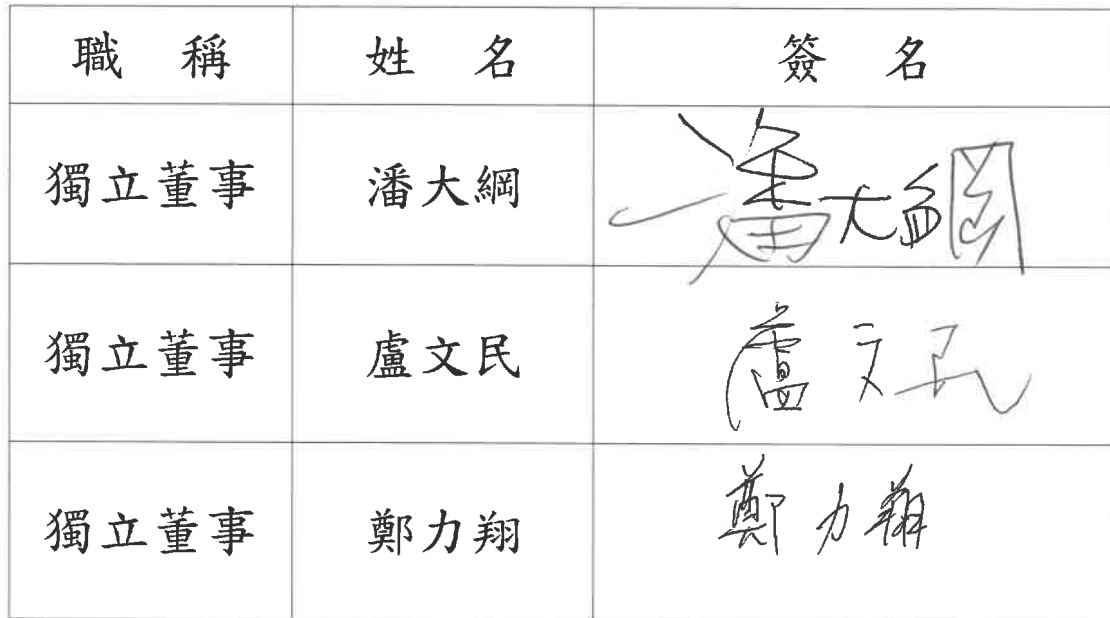 職 稱 姓 名 簽 名
獨立董事 潘大綱 潘大綱
獨立董事 盧文民 盧文民
獨立董事 鄭力翔 鄭力翔